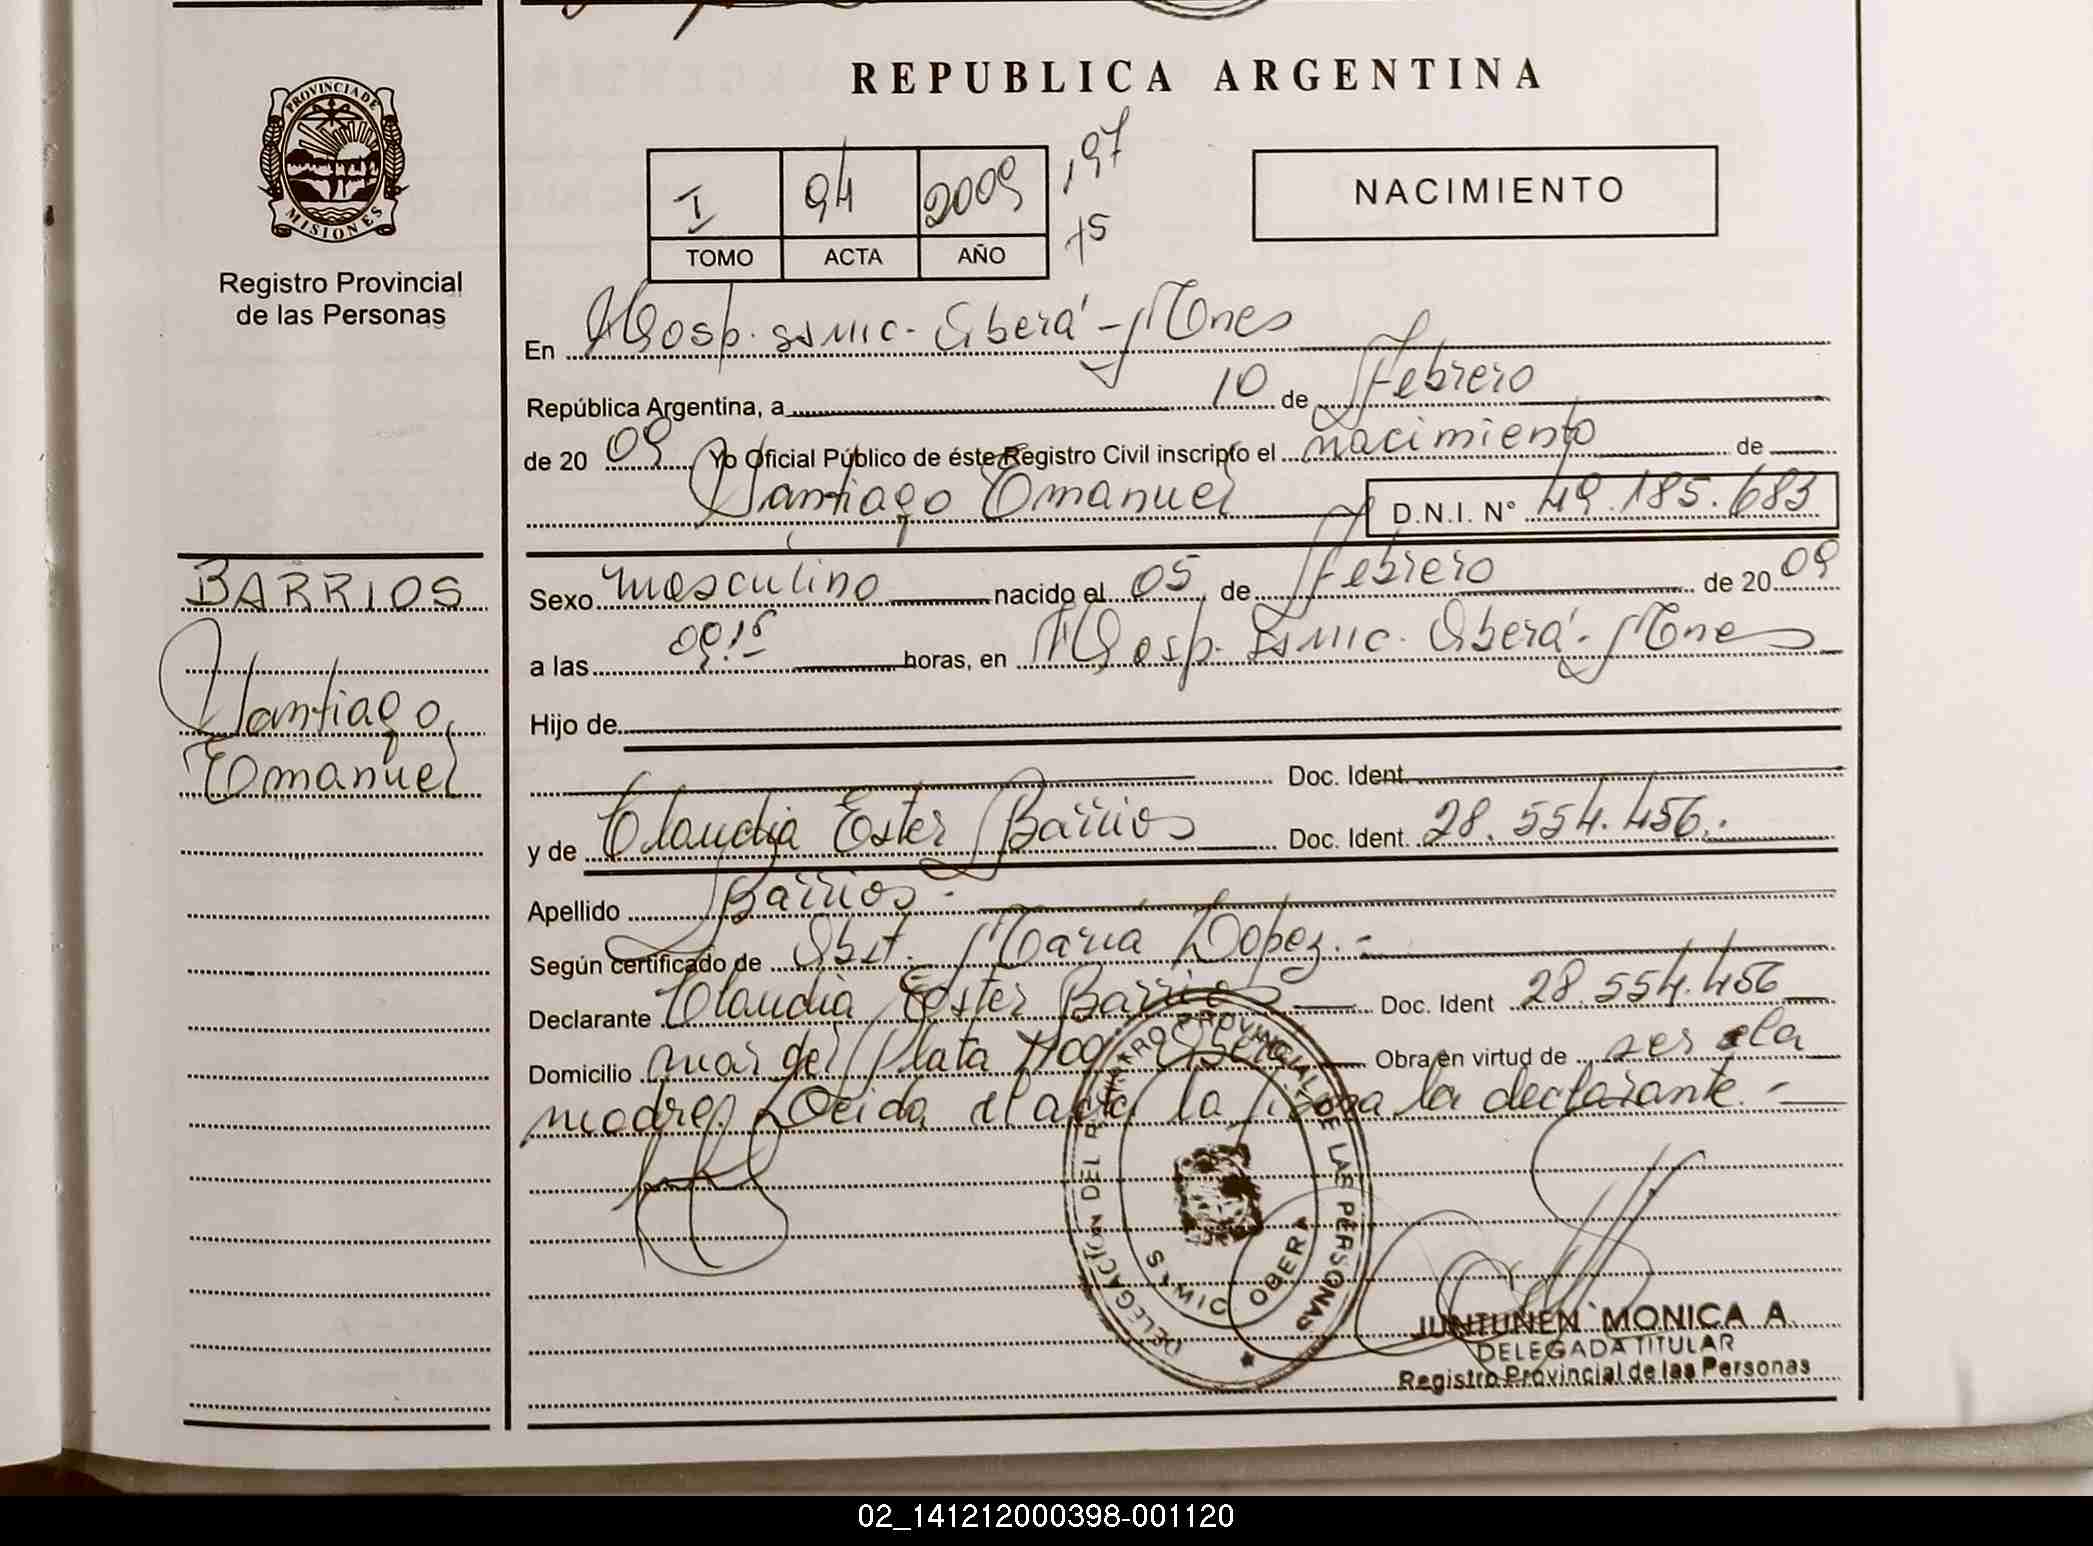 REPUBLICA ARGENTINA
PROVINCIA DE MISIONES
Registro Provincial
de las Personas
I 94 2009 197
TOMO ACTA AÑO 75
NACIMIENTO
En Hosp. SSMIC. Oberá - Mnes
República Argentina, a 10 de Febrero
de 2009 Yo Oficial Público de éste Registro Civil inscripto el nacimiento de
Santiago Emanuel D.N.I. N° 49.185.683
BARRIOS
Santiago
Emanuel
Sexo masculino nacido el 05 de Febrero de 2009
a las 09:15 horas, en Hosp. SSMIC. Oberá - Mnes
Hijo de
Doc. Ident.
y de Claudia Ester Barrios Doc. Ident. 28.554.456.-
Apellido Barrios.-
Según certificado de Obst. María Lopez.-
Declarante Claudia Ester Barrios Doc. Ident 28.554.456
Domicilio mar del Plata Oberá Obra en virtud de ser la
madre. Leida el acta la firma la declarante.-
DELEGACION DEL REGISTRO PROVINCIAL DE LAS PERSONAS
OBERA
JUNTUNEN MONICA A.
DELEGADA TITULAR
Registro Provincial de las Personas
02_141212000398-001120